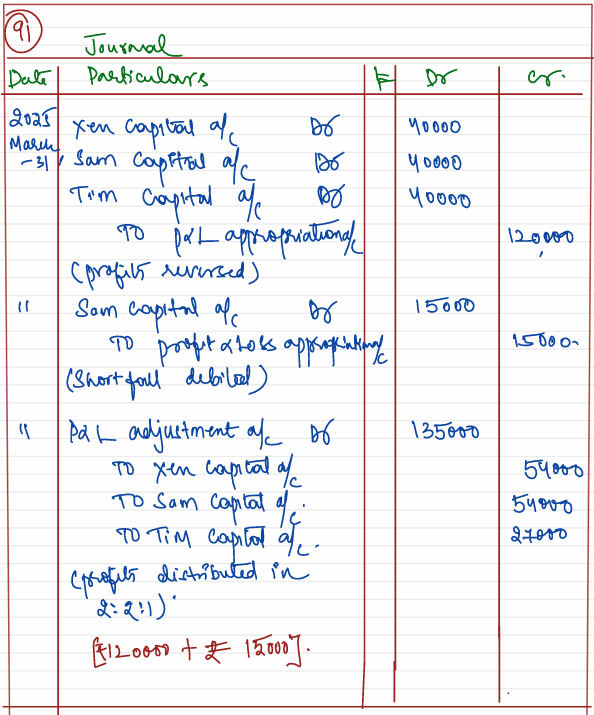 9i
Journal
Date Particulars LF Dr Cr.
2025 March -31, Xen Capital a/c Dr 40000
Sam Capital a/c Dr 40000
Tim Capital a/c Dr 40000
TO P&L appropriation a/c 120000
(profits reversed)
" Sam Capital a/c Dr 15000
TO profit & Loss appropriation a/c 15000
(Shortfall debited)
" P&L adjustment a/c Dr 135000
TO Xen Capital a/c 54000
TO Sam Capital a/c. 54000
TO TIM Capital a/c. 27000
(profits distributed in
2:2:1)
[₹120000 + ₹ 15000].